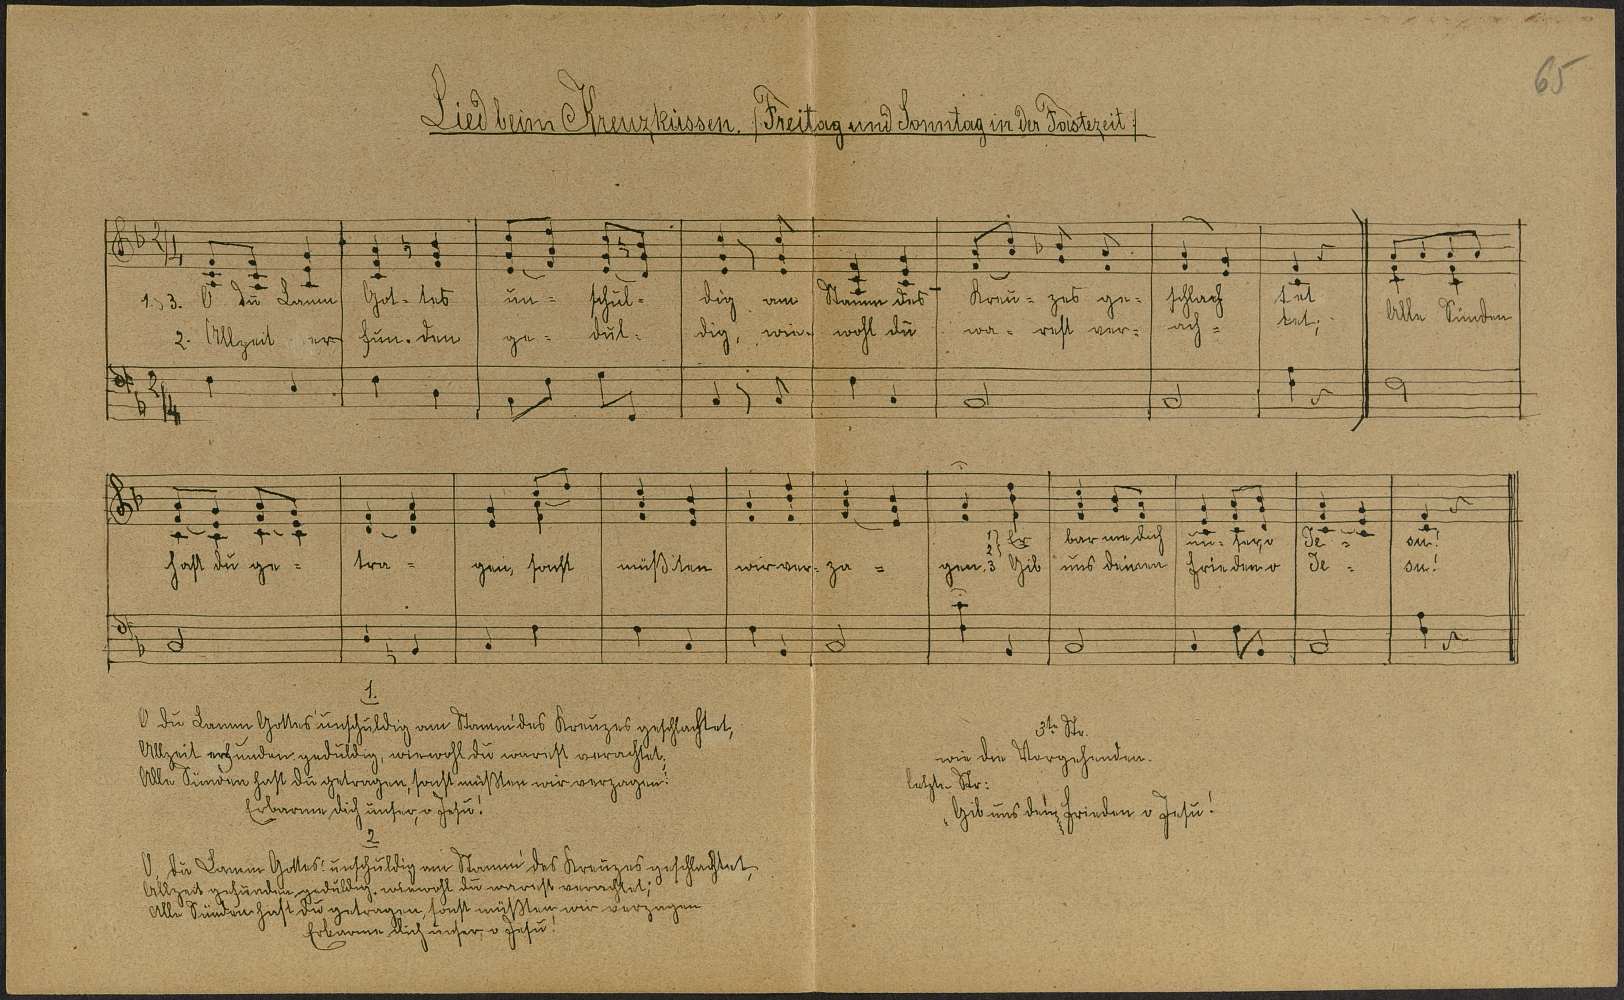 65
Lied beim Kreuzküssen. /Freitag und Sonntag in der Fastezeit/
1. 3. O du Lamm Got- tes un- schul- dig am Stamm des Kreu- zes ge- schlach tet Alle Sünden
2. Allzeit er fun- den ge- dul- dig, wie- wohl du wa- rest ver- ach- tet;
1) 2) Er bar me dich un- ser, o Je- su!
hast du ge- tra- gen, sonst müß ten wir ver- za- gen. 3 Gib uns deinen Frieden o Je- su!
1.
O du Lamm Gottes unschuldig am Stamm des Kreuzes geschlachtet,
Allzeit erfunden geduldig, wiewohl du warest verachtet;
Alle Sünden hast du getragen, sonst müßten wir verzagen!
Erbarme dich unser, o Jesu!
2
O, du Lamm Gottes! unschuldig am Stamm des Kreuzes geschlachtet,
Allzeit gefunden geduldig, wiewohl du warest verachtet;
Alle Sünden hast du getragen, sonst müßten wir verzagen
Erbarme dich unser, o Jesu!
3te Str.
wie die Vorgehenden.
letzte Str:
"Gib uns dein Frieden o Jesu!